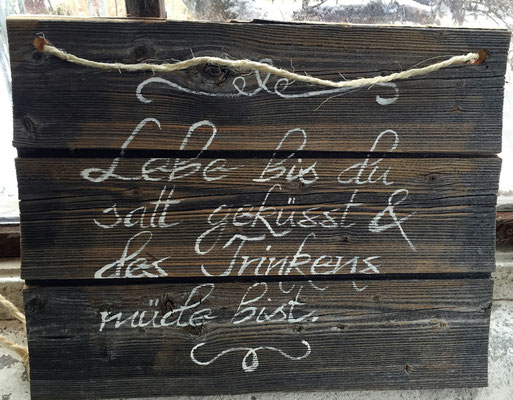 Lebe bis du
satt geküsst &
des Trinkens
müde bist.